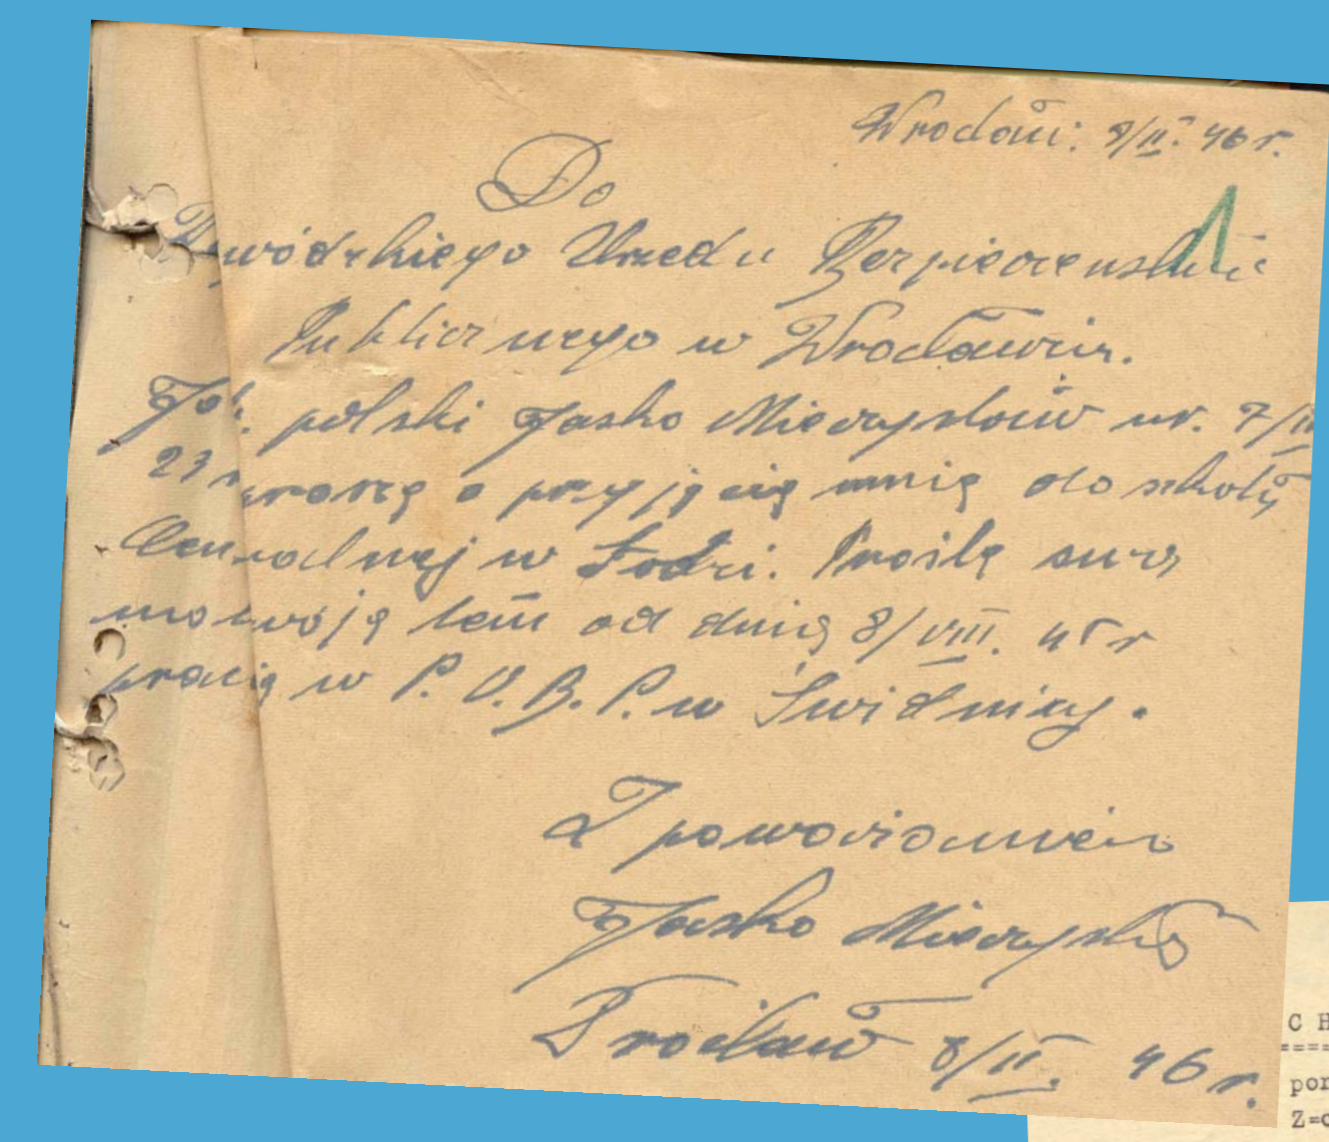 Wrocław: 8/II. 46 r.
1
Do
Wojewódzkiego Urzedu Bezpieczeństwa
Publicznego w Wrocławiu.
Ja ob. polski Jasko Mieczysław ur. 7/II
23 r prosze o przyjęcię mnię do szkoły
Centralnej w Łodzi. Prośbę swą
motwoję tem od dnią 8/VIII. 45 r
pracię w P. U. B. P. w Świdnicy.
Z poważaniem
Jasko Mieczysław
Wrocław 8/II. 46 r.
C H
====
por
Z=c